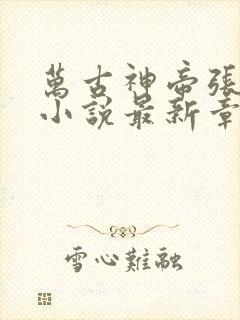 萬古神帝張
小說最新章
雪心難融